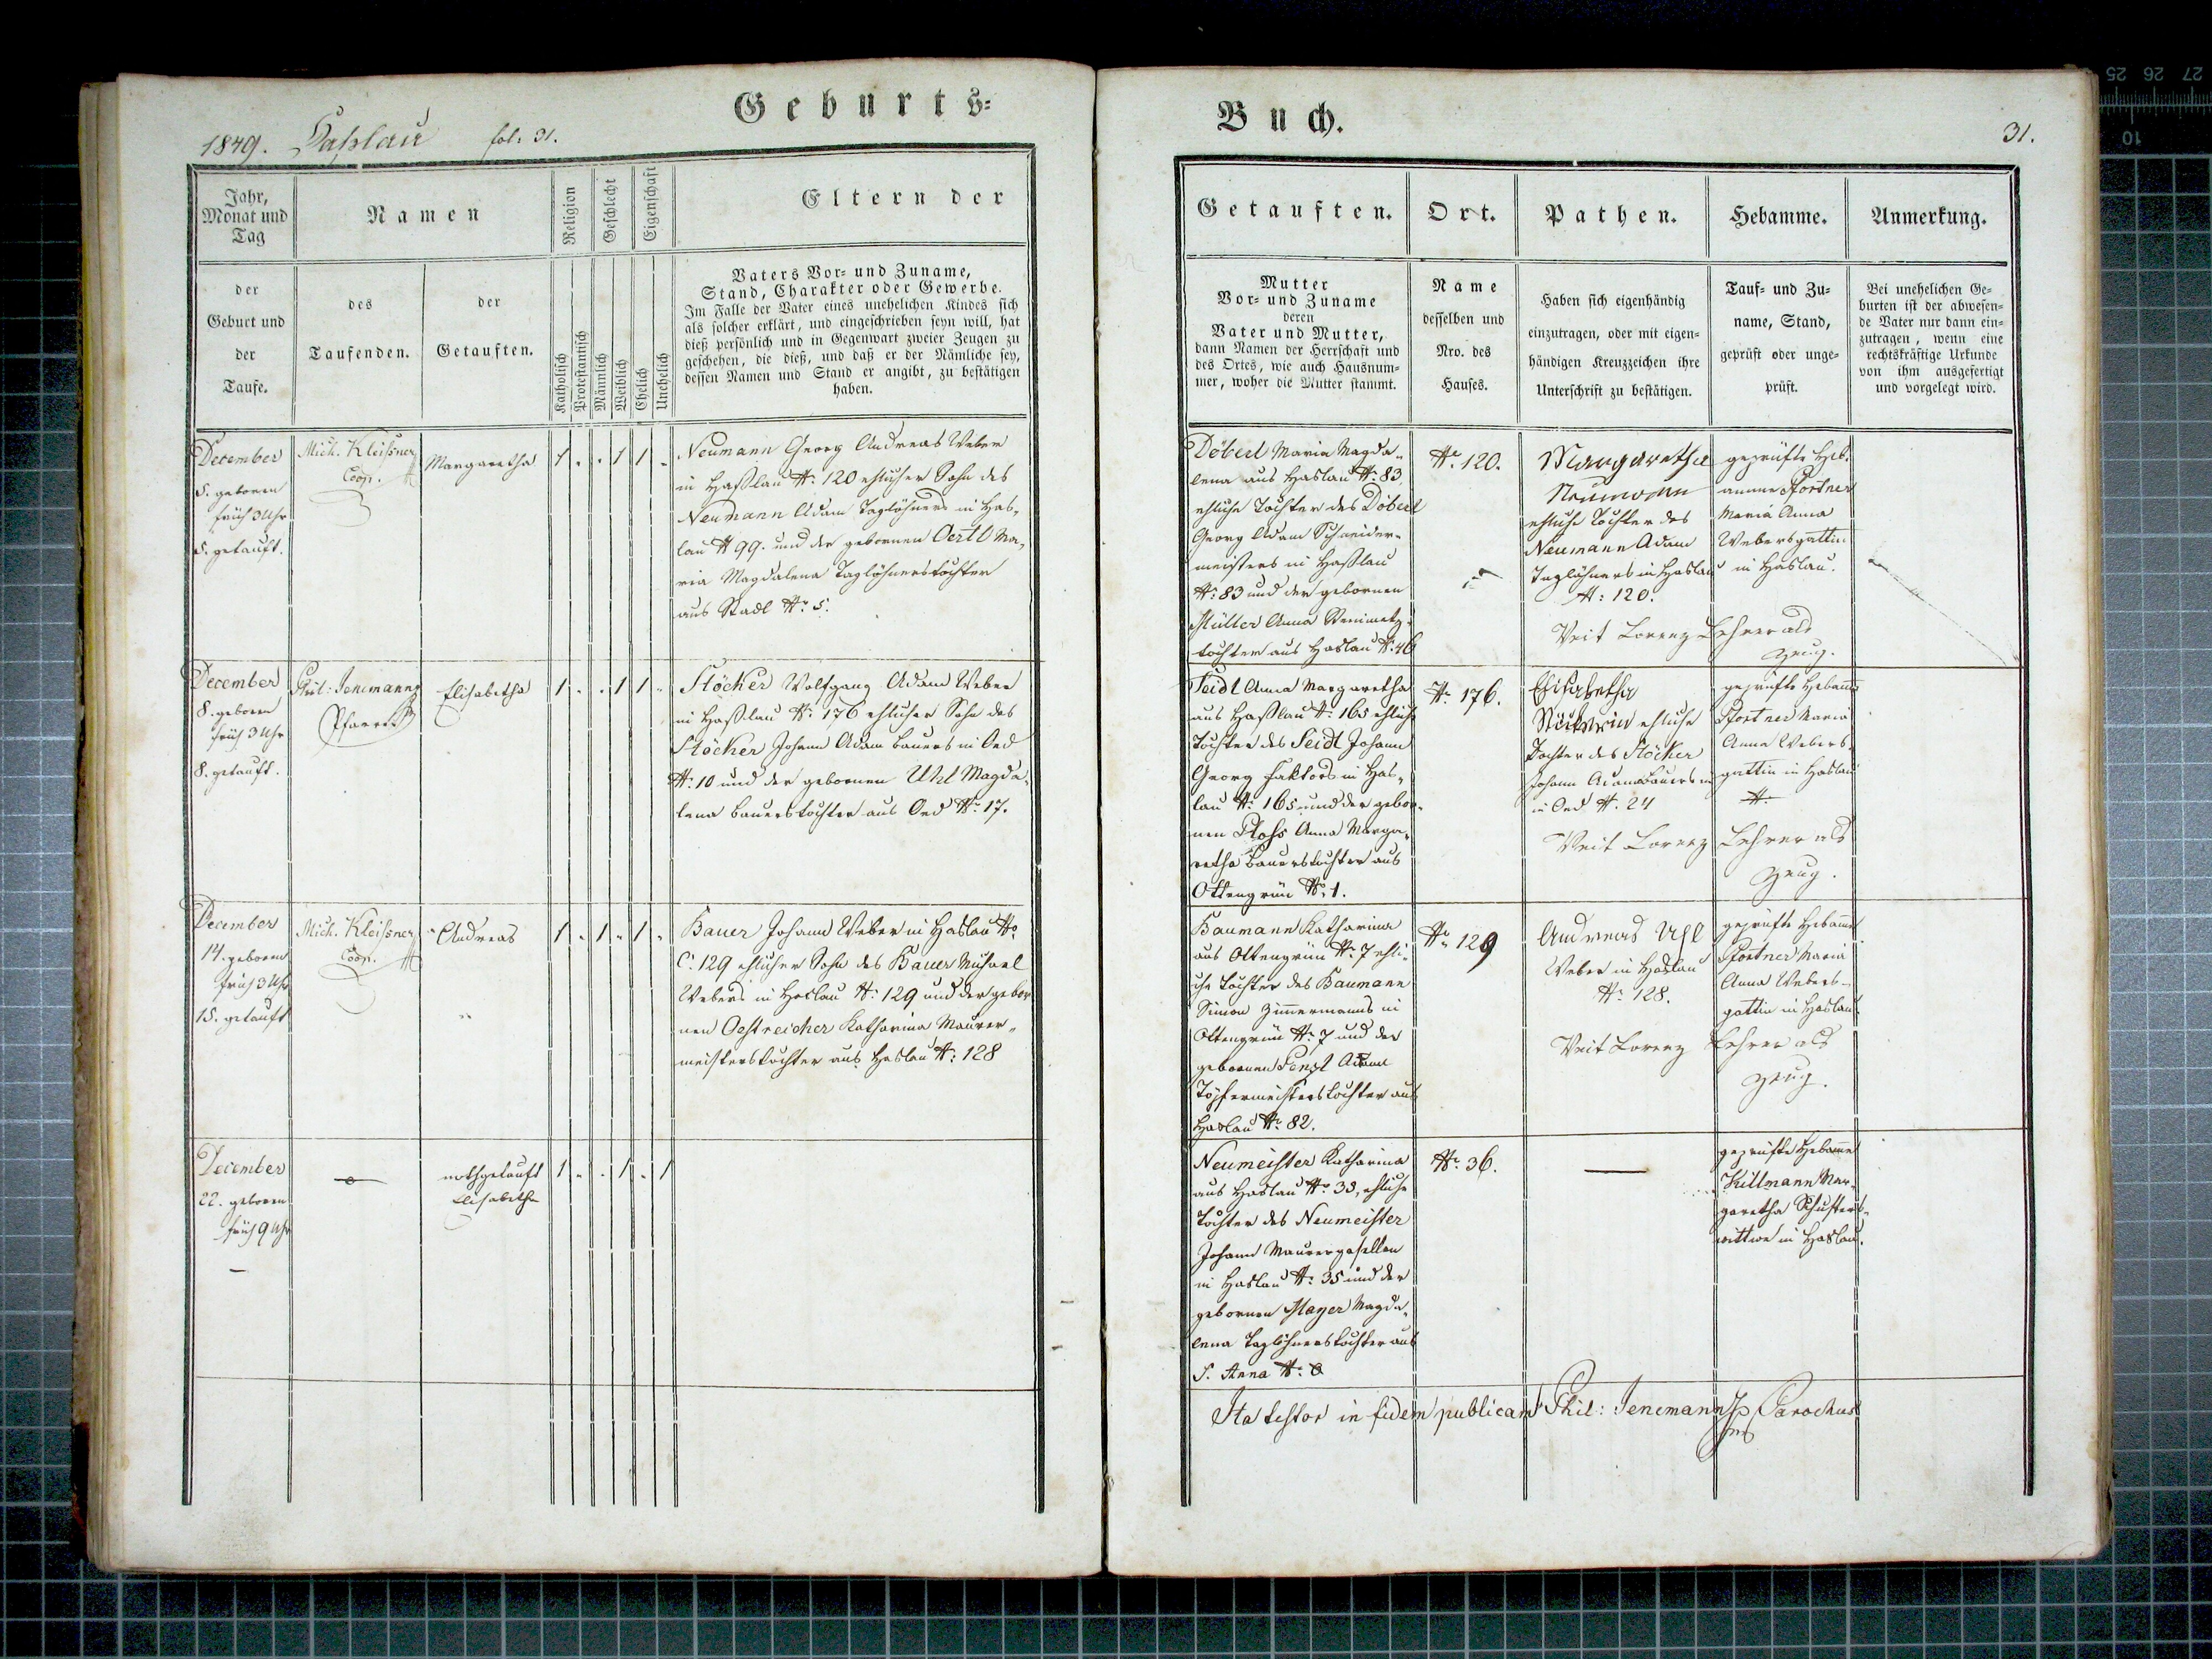 Geburts-
1849. Haßlau fol: 31.
Jahr,
Monat und
Tag
Namen
Religion
Geschlecht
Eigenschaft
Eltern der
der
Geburt und
der
Taufe.
des
Taufenden.
der
Getauften.
Katholisch
Protestantisch
Männlich
Weiblich
Ehelich
Unehelich
Vaters Vor- und Zuname,
Stand, Charakter oder Gewerbe.
Im Falle der Vater eines unehelichen Kindes sich
als solcher erklärt, und eingeschrieben seyn will, hat
dieß persönlich und in Gegenwart zweier Zeugen zu
geschehen, die dieß, und daß er der Nämliche sey,
dessen Namen und Stand er angibt, zu bestätigen
haben.
December
5. geboren
früh 3 Uhr
5. getauft.
Mich. Kleißner
Coop.
Margaretha
1 . . 1 1 .
Neumann Georg Andreas Weber
in Haßlau N: 120 ehlicher Sohn des
Neumann Adam Taglöhners in Has-
lau N 99. und der gebornen Oertl Ma-
ria Magdalena Taglöhnerstochter
aus Stadl N: 5.
December
8. geboren
früh 3 Uhr
8. getauft.
Phil: Jenemann
Pfarrer
Elisabetha
1 . . 1 1 .
Stöcker Wolfgang Adam Weber
in Haßlau N: 176 ehlicher Sohn des
Stöcker Johann Adam Bauers in Oed
N: 10 und der gebornen Uhl Magda-
lena Bauerstochter aus Oed N: 17.
December
14. geboren
früh 3 Uhr
15. getauft
Mich. Kleißner
Coop.
Andreas
1 . 1 . 1 .
Bauer Johann Weber in Haslau N:
C: 129 ehlicher Sohn des Bauer Michael
Webers in Haslau N: 129 und der gebor
nen Oestreicher Katharina Maurer-
meisterstochter aus Haslau N: 128
December
22. geboren
früh 9 Uhr
—
nothgetauft
Elisabetha
1 . . 1 . 1
Buch.
31.
Getauften.
Ort.
Pathen.
Hebamme.
Anmerkung.
Mutter
Vor- und Zuname
deren
Vater und Mutter,
dann Namen der Herrschaft und
des Ortes, wie auch Hausnum-
mer, woher die Mutter stammt.
Name
desselben und
Nro. des
Hauses.
Haben sich eigenhändig
einzutragen, oder mit eigen-
händigen Kreuzzeichen ihre
Unterschrift zu bestätigen.
Tauf- und Zu-
name, Stand,
geprüft oder unge-
prüft.
Bei unehelichen Ge-
burten ist der abwesen-
de Vater nur dann ein-
zutragen, wenn eine
rechtskräftige Urkunde
von ihm ausgefertigt
und vorgelegt wird.
Döberl Maria Magda-
lena aus Haslau N: 83,
ehliche Tochter des Döberl
Georg Adam Schneider-
meisters in Haßlau
N: 83 und der gebornen
Müller Anna Steinmetz-
tochter aus Haslau N: 46
N: 120.
Margaretha
Neumann
ehliche Tochter des
Neumann Adam
Taglöhners in Haslau
N: 120.
Veit Lorenz Lehrer als
Zeug.
geprüfte Heb-
amme Portner
Maria Anna
Webersgattin
in Haslau.
Seidl Anna Margaretha
aus Haßlau N: 165 ehliche
Tochter des Seidl Johann
Georg Faktors in Has-
lau N: 165 und der gebor-
nen Ploß Anna Marga-
retha Bauerstochter aus
Ottengrün N: 1.
N: 176.
Elisabetha
Stöckerin ehliche
Tochter des Stöcker
Johann Adam Bauers in
in Oed N. 24
Veit Lorenz Lehrer als
Zeug.
geprüfte Hebamme
Portner Maria
Anna Webers-
gattin in Haslau
N:
Baumann Katharina
aus Ottengrün N: 7 ehli-
che Tochter des Baumann
Simon Zimmermanns in
Ottengrün N: 7 und der
gebornen Penzl
Töpfermeisterstochter aus
Haslau N: 82.
N: 129
Andreas Uhl
Weber in Haslau
N: 128.
Veit Lorenz Lehrer als
Zeug.
geprüfte Hebamme
Portner Maria
Anna Webers-
gattin in Haslau.
Neumeister Katharina
aus Haslau N: 33, ehliche
Tochter des Neumeister
Johann Maurergesellen
in Haslau N: 35 und der
gebornen Mayer Magda-
lena Taglöhnerstochter aus
S. Anna N: 8
N: 36.
—
geprüfte Hebamme
Killmann Mar-
garetha Schusters-
wittwe in Haslau.
Ita testor in fidem publicam Phil: Jenemann Parochus